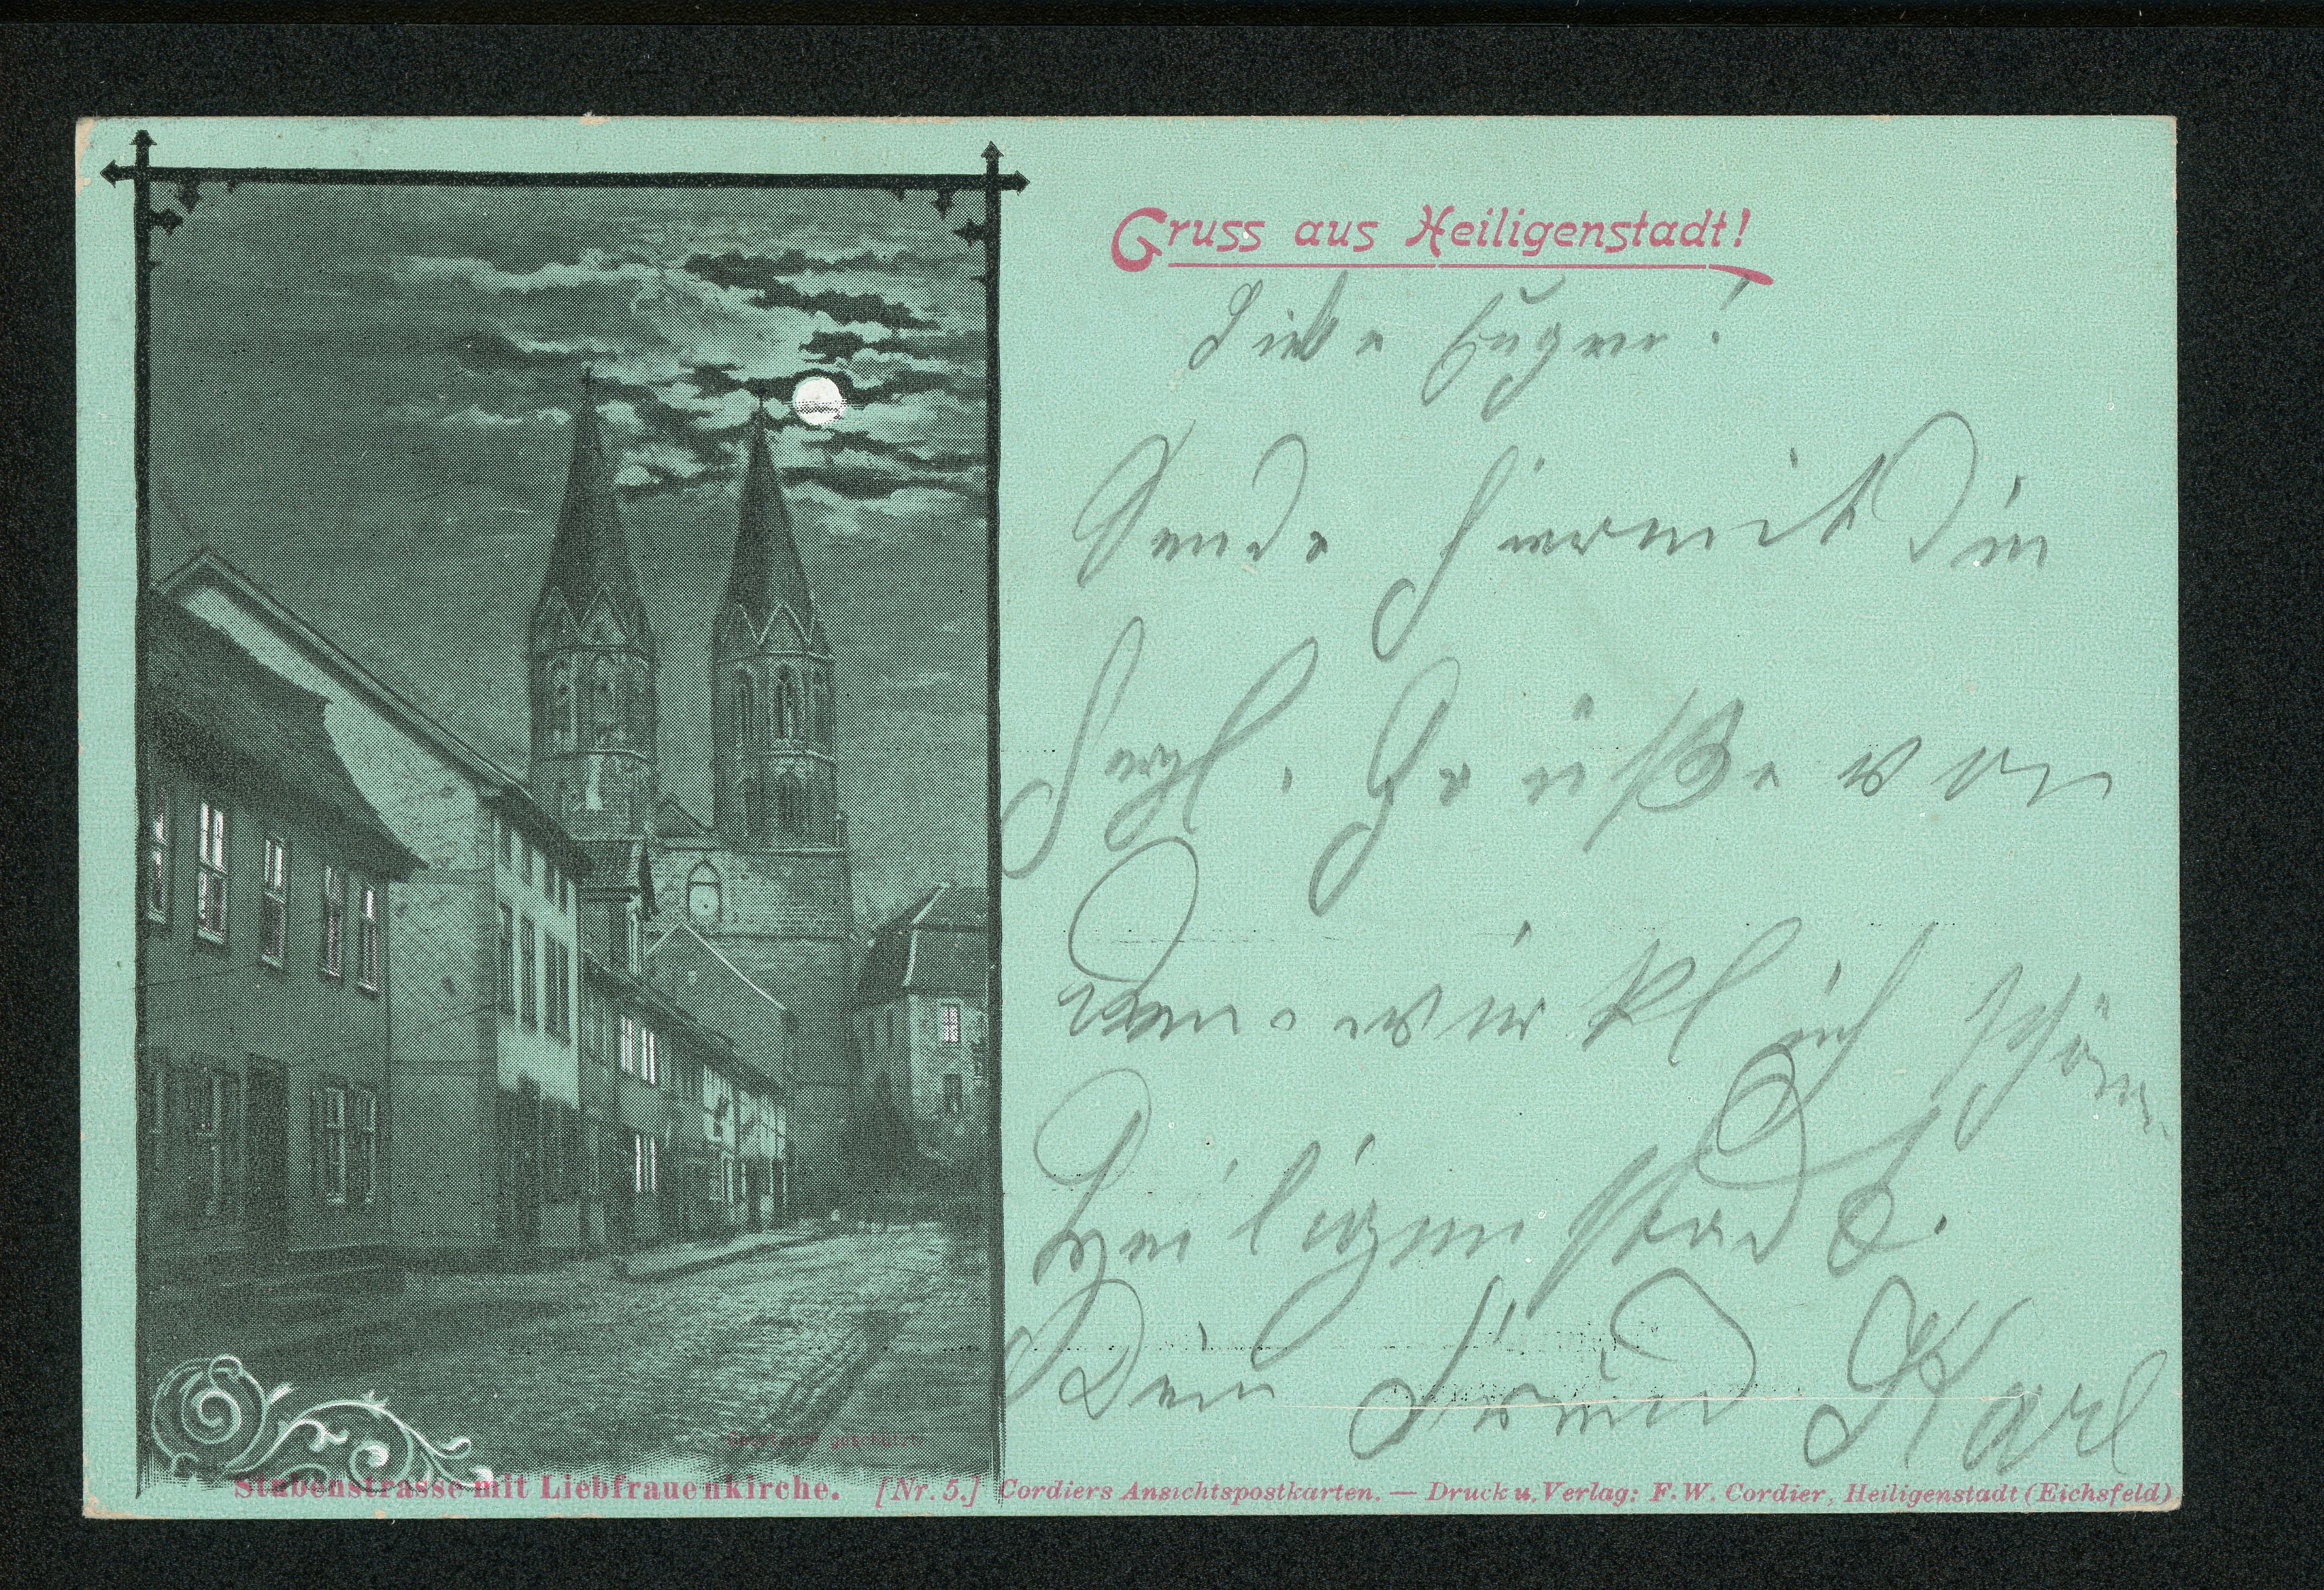 Gruss aus Heiligenstadt!
Liebe Eugen!
Sende hiermit Dir
herzl. Grüße von
wirklich schönen
Heiligenstadt.
Dein Freund Karl
Gesetzlich geschützt
Stubenstrasse mit Liebfrauenkirche. [Nr. 5.] Cordiers Ansichtspostkarten. — Druck u. Verlag: F. W. Cordier, Heiligenstadt (Eichsfeld)